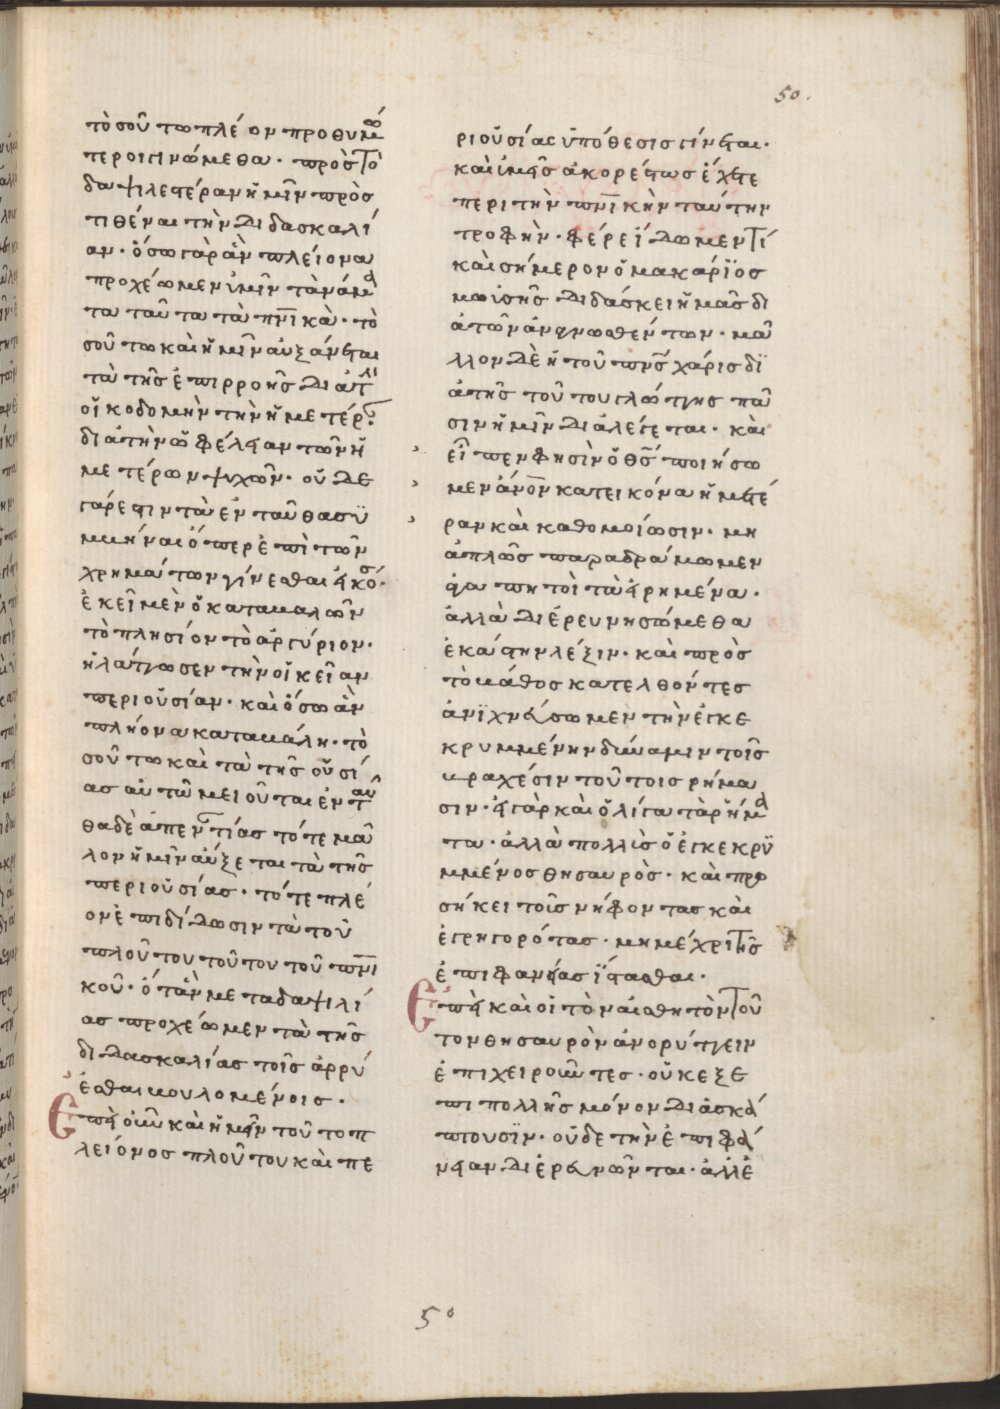 50.
τὸσοῦτωπλέονπροθυμώ
τεροιγινώμεθα· πρὸςτὸ
δαψιλεστέρανἡμῖνπρὸς
τιθέναιτὴνδιδασκαλί
αν· ὅσωγὰρἂνπλείονα
προχέωμενὑμῖντὰνάμα
τα ταῦτα τὰ πνικὰ· τὸ
σοῦτωκαὶἡμῖναὐξάνεται
τὰτῆςἐπιρροῆς διάτὶ
οἰκοδομὴντὴνἡμετέρ
διὰτὴνὠφέλειαντῶνἡ
μετέρωνψυχῶν· οὐδὲ
γάρεστιντὰἐνταῦθασϋ
μβῆναιὅπερἐπὶτῶν
χρημάτωνγίνεσθαιεἰκός·
ἐκεῖμὲνὁκαταβαλῶν
τὸπλησίοντὸἀργύριον·
ἠλάττωσεντὴνοἰκεῖαν
περιοὐσίαν· καὶὅσωἀν
πλήονακαταβάλη· τὸ
σοῦτωκαὶτὰτῆςοὐσί
ασαὐτῶμειοῦταιἐνταῦ
θαδὲἀπεντίας τότεμᾶ
λονἡμῖναὔξεταιτὰτῆς
περιοὐσίας· τότεπλέ
ονἐπιδίδωσιντὰτοῦ
πλοῦτουτοῦτοντοῦπνι
κοῦ· ὅτἂνμεταδαψιλί
αςπροχέωμεντὰτῆς
διδασκαλίαςτοῖςἀρρύ
έσθαιβουλομένοις·
Ἐπεὶοὖνκαὶἡμῖντοῦτοπ
λείονοςπλοῦτουκαὶπε
ριοὐσίαςὑπόθεσιςγίνεται·
καὶὑμεῖςἀκορέστωςἔχετε
περιτὴνπνικὴνταύτην
τροφὴν· φέρεἴδωμεντί
καὶσήμερονὁμακάρϊος
μωϊσῆςδιδάσκειἡμᾶςδι
ἀτῶνἀναγνωσθέντων· μᾶ
λλονδὲἡτοῦπνςχάριςδϊ
ἀτῆςτοῦτουγλώττηςπᾶ
σινἡμῖνδιαλέγεται· καὶ
εἶπενφησὶνὁθςποιήσω
μενἀνονκατεικόναἡμετέ
ρανκαὶκαθομοίωσιν· μη
ἁπλῶςπαραδράμωμεν
ἀγαπητοὶτὰεἰρημένα·
ἀλλὰδιέρευνησώμεθα
ἑκάστηνλέξιν· καὶπρὸς
τὸβάθοςκατελθόντες
ἀνϊχνεύσωμεντὴνἐγκε
κρυμμένηνδύναμιντοῖς
βραχέσιντοῦτοιςρήμα
σιν· εἰγὰρκαὶὀλίγατὰρήμα
τα· ἀλλὰπολλὶςὁἐγκεκρϋ
μμένοςθησαυρὸς· καὶπρο
σήκειτοῖςνήφονταςκαὶ
ἐγρηγορότας· μημέχριτῆς
ἐπιφανείαςἵστασθαι·
Ἐπεὶκαὶοἱτὸναἰσθητὸντοῦ
τονθησαυρὸνἀνορύττειν
ἐπιχειροῦντες· οὐκεξε
πιπολλῆςμόνονδιάσκά
πτουσϊν· οὐδὲτὴνἐπιφά
νειανδιέρευνῶνται· ἀλλὲ
50